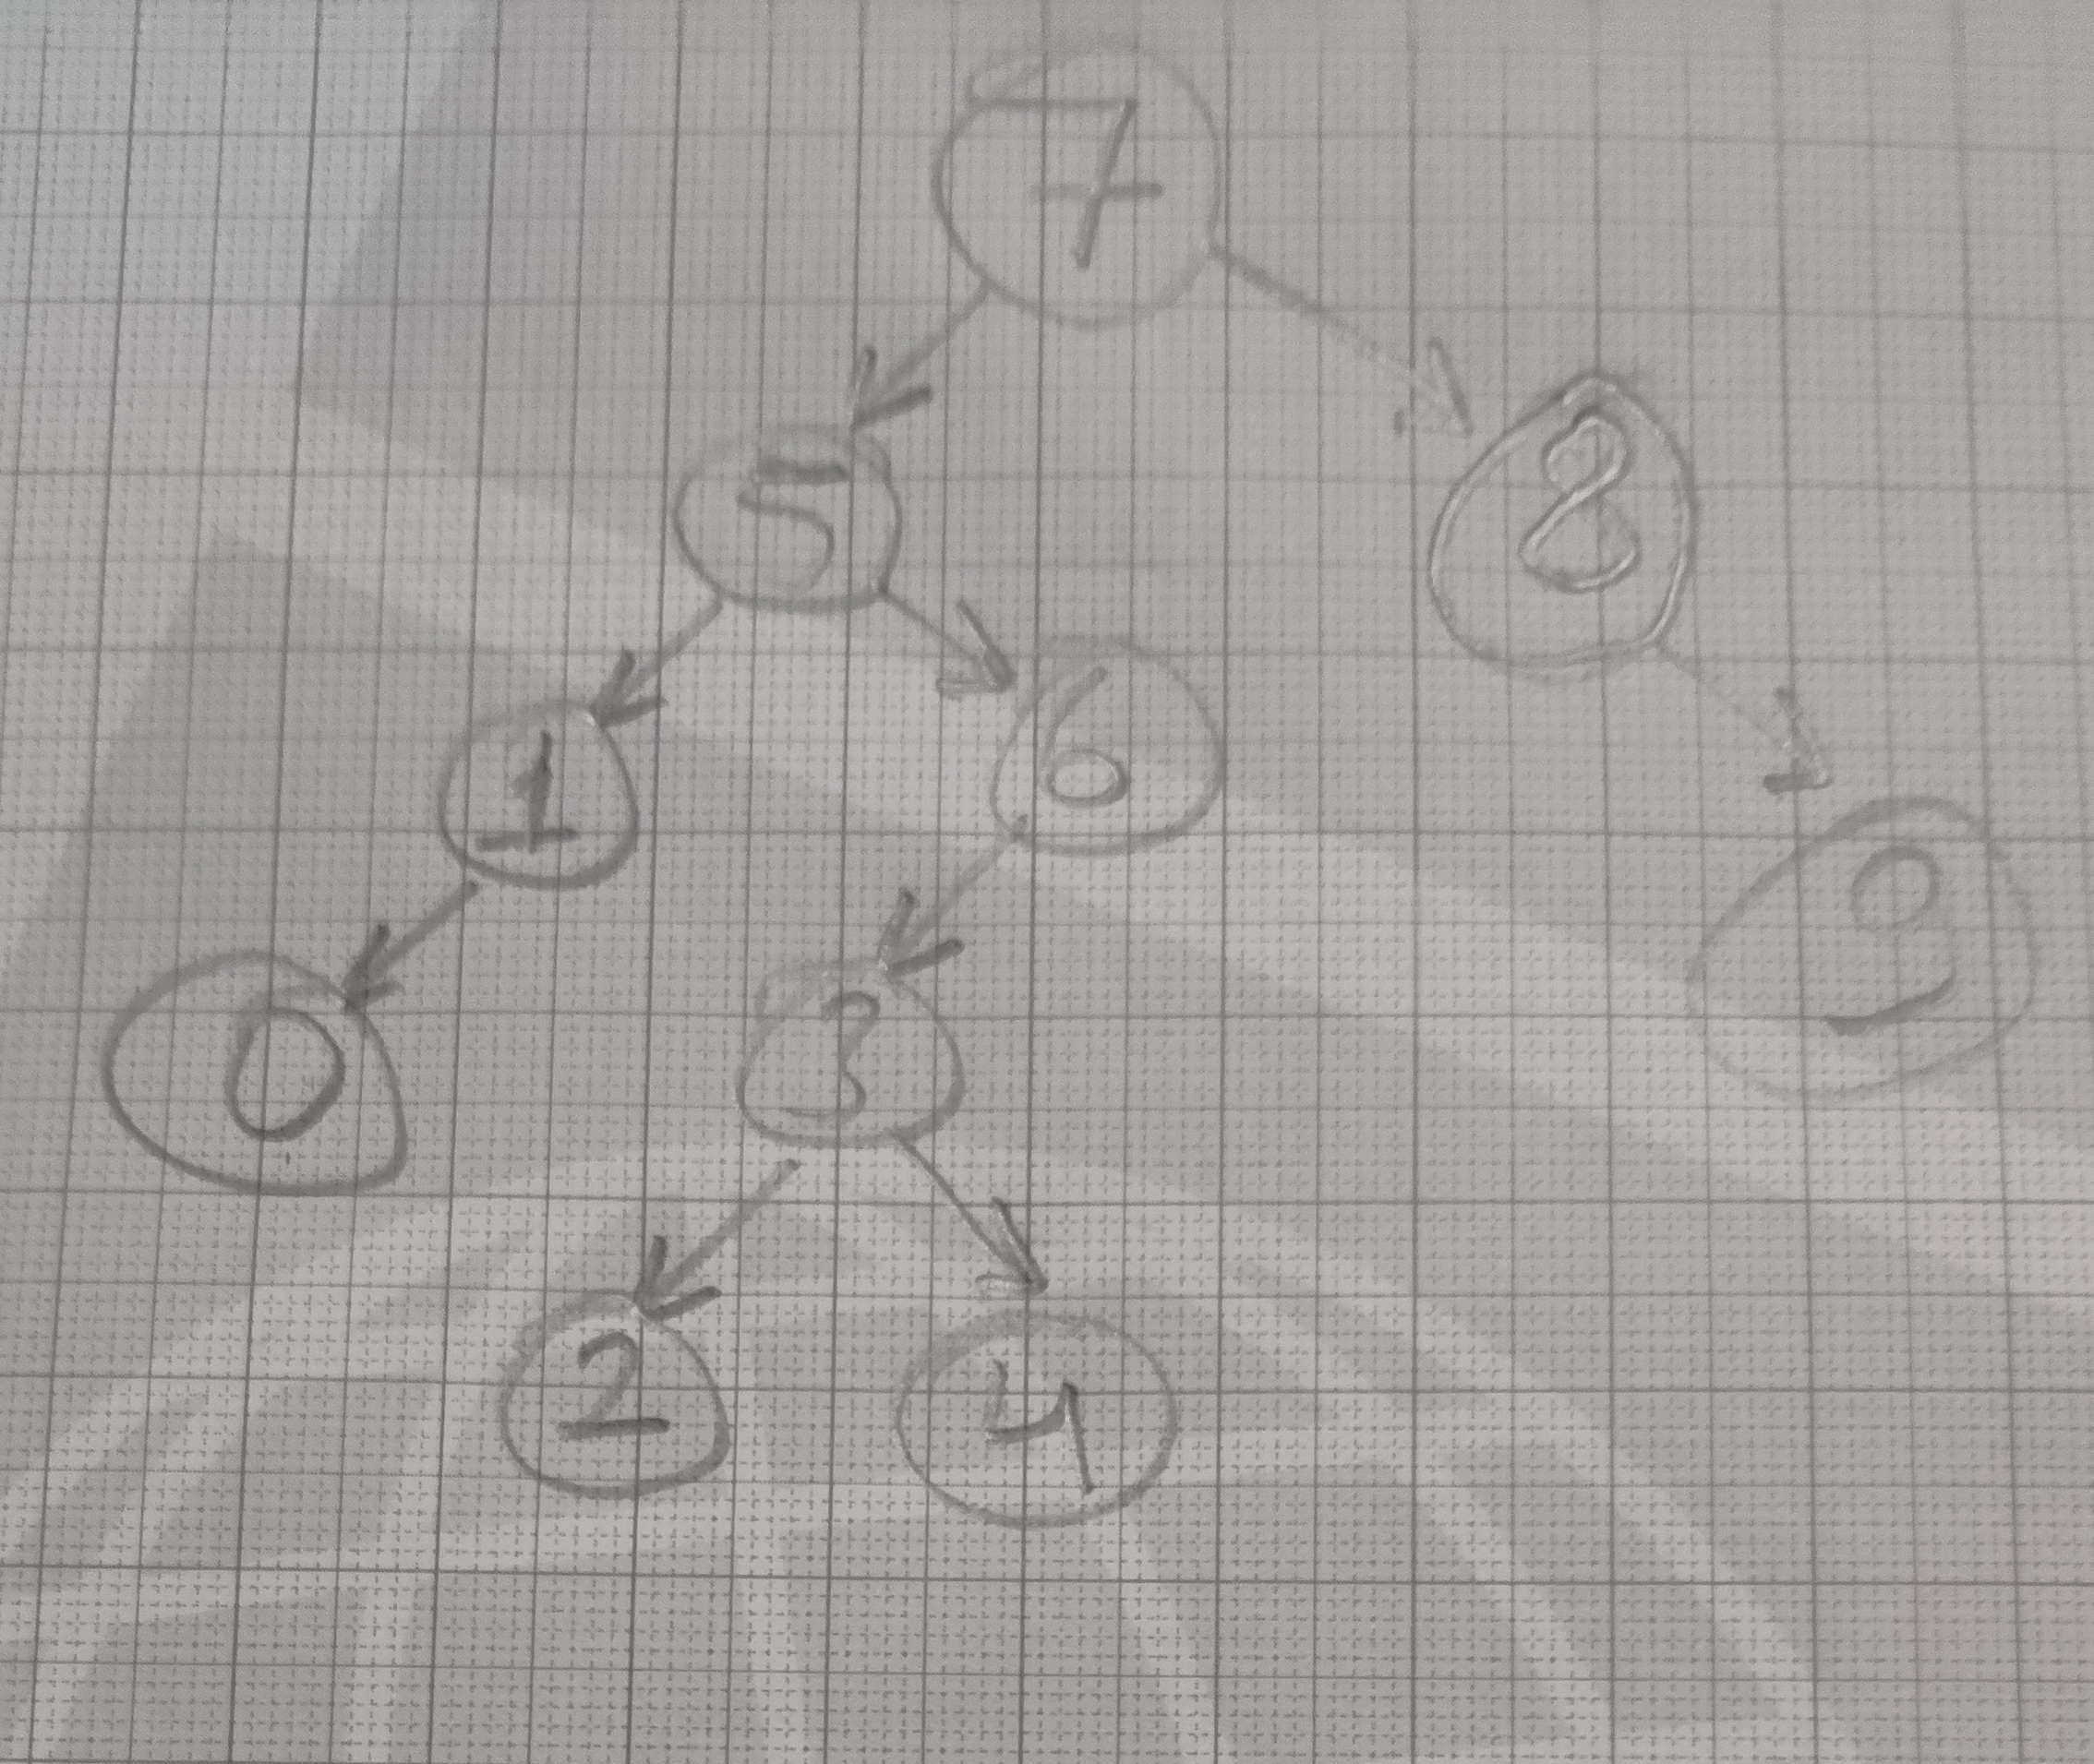 7
5 8
1 6
0 3 9
2 4